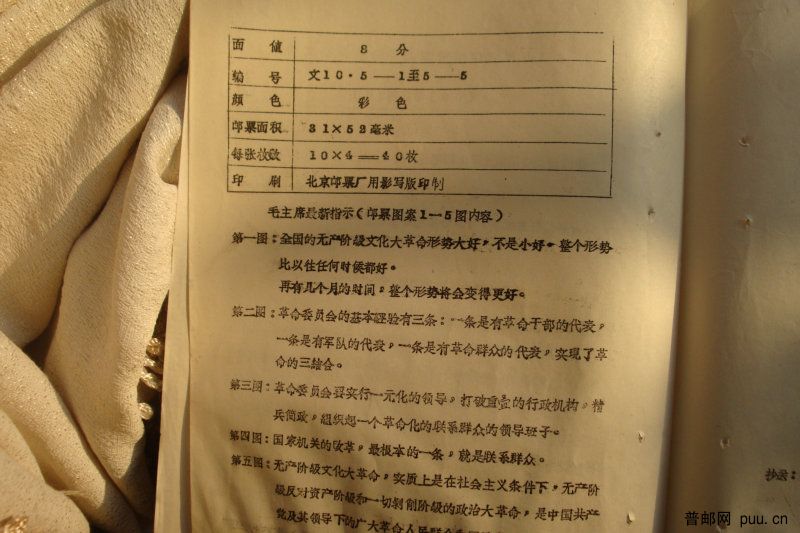 面 值 8 分
编 号 文10·5——1至5——5
颜 色 彩 色
邮票面积 31×52毫米
每张枚数 10×4——40枚
印 刷 北京邮票厂用影写版印制
毛主席最新指示(邮票图案1—5图内容)
第一图:全国的无产阶级文化大革命形势大好,不是小好。整个形势
比以往任何时候都好。
再有几个月的时间,整个形势将会变得更好。
第二图:革命委员会的基本经验有三条:一条是有革命干部的代表,
一条是有军队的代表,一条是有革命群众的代表,实现了革
命的三结合。
第三图:革命委员会要实行一元化的领导,打破重叠的行政机构,精
兵简政,组织起一个革命化的联系群众的领导班子。
第四图:国家机关的改革,最根本的一条,就是联系群众。
第五图:无产阶级文化大革命,实质上是在社会主义条件下,无产阶
级反对资产阶级和一切剥削阶级的政治大革命,是中国共产
党及其领导下的广大革命人民群众
抄送:
普邮网 puu.cn